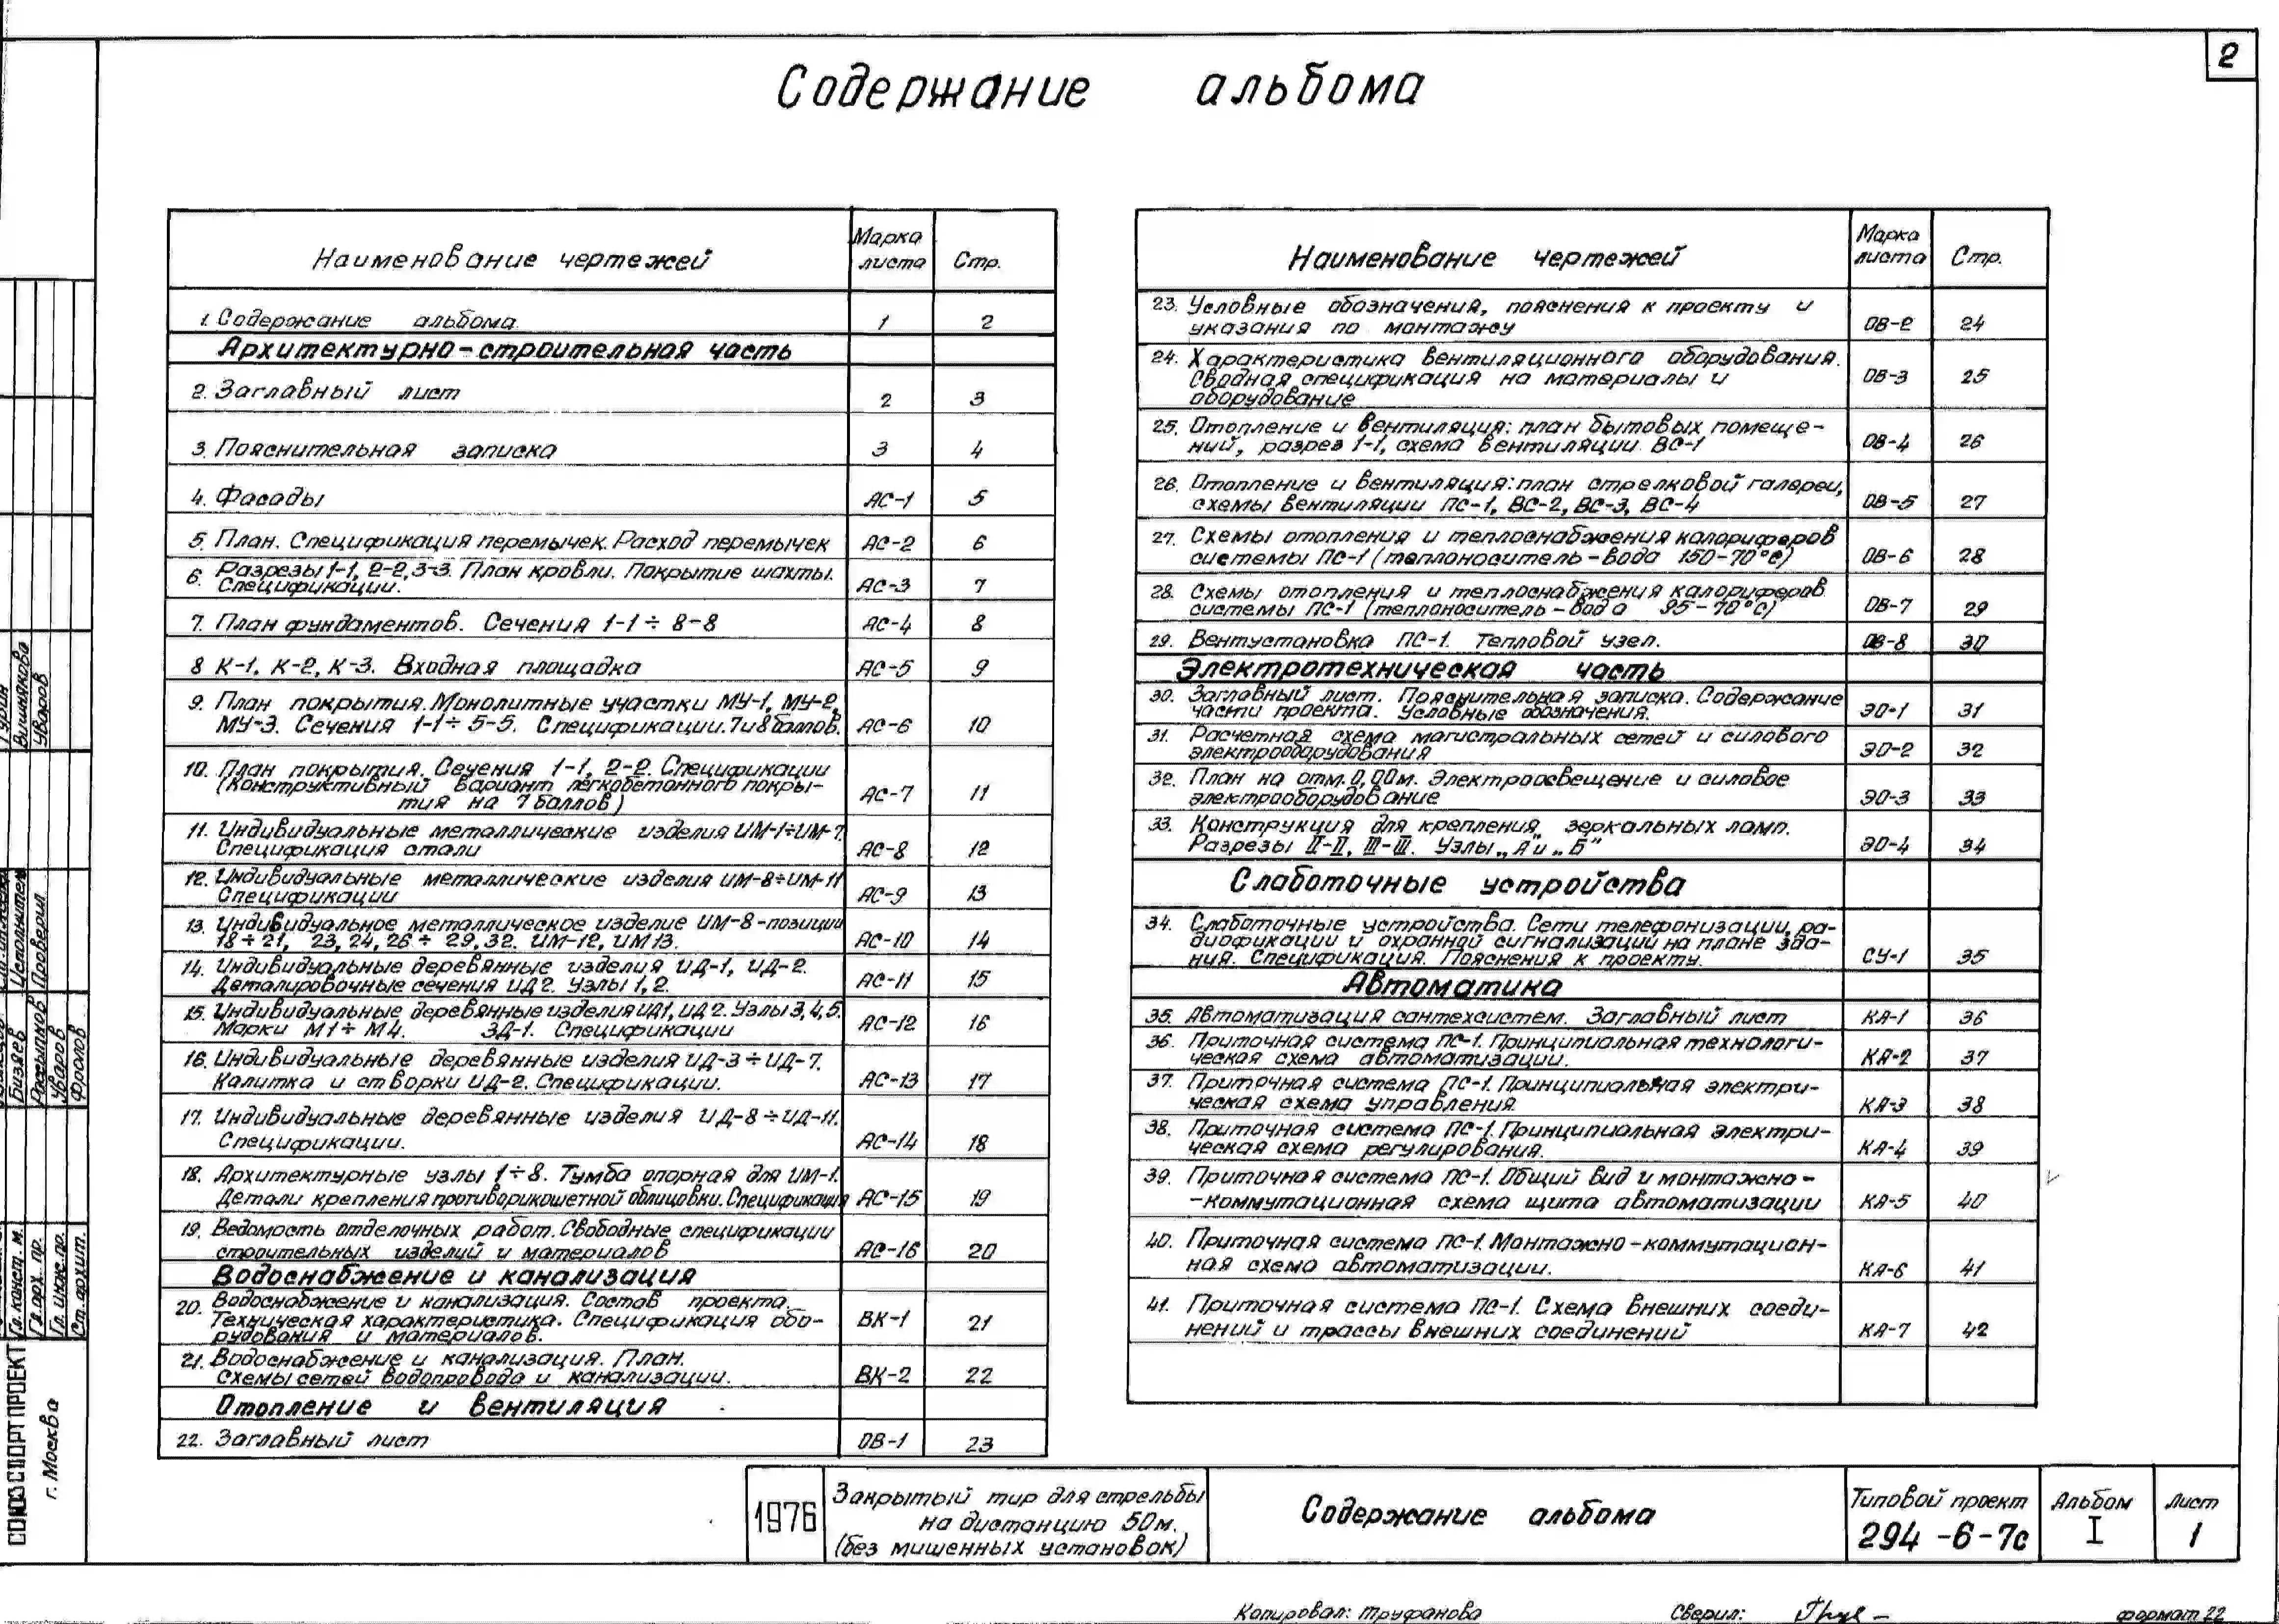 2
Содержание альбома
Наименование чертежей
Марка листа
Стр.
1. Содержание альбома. 1 2
Архитектурно-строительная часть
2. Заглавный лист 2 3
3. Пояснительная записка 3 4
4. Фасады АС-1 5
5. План. Спецификация перемычек. Расход перемычек АС-2 6
6. Разрезы 1-1, 2-2, 3-3. План кровли. Покрытие шахты.
Спецификации. АС-3 7
7. План фундаментов. Сечения 1-1÷8-8 АС-4 8
8 К-1, К-2, К-3. Входная площадка АС-5 9
9. План покрытия. Монолитные участки МУ-1, МУ-2,
МУ-3. Сечения 1-1÷5-5. Спецификации. 7и8 баллов. АС-6 10
10. План покрытия. Сечения 1-1, 2-2. Спецификации
(Конструктивный вариант легкобетонного покры-
тия на 7 баллов) АС-7 11
11. Индивидуальные металлические изделия ИМ-1÷ИМ-7.
Спецификация стали АС-8 12
12. Индивидуальные металлические изделия ИМ-8÷ИМ-11
Спецификации АС-9 13
13. Индивидуальное металлическое изделие ИМ-8-позиции
18÷21, 23, 24, 26÷29, 32. ИМ-12, ИМ13. АС-10 14
14. Индивидуальные деревянные изделия ИД-1, ИД-2.
Деталировочные сечения ИД2. Узлы 1, 2. АС-11 15
15. Индивидуальные деревянные изделия ИД1, ИД2. Узлы 3, 4, 5.
Марки М1÷М4. ЗД-1. Спецификации АС-12 16
16. Индивидуальные деревянные изделия ИД-3÷ИД-7.
Калитка и створки ИД-2. Спецификации. АС-13 17
17. Индивидуальные деревянные изделия ИД-8÷ИД-11.
Спецификации. АС-14 18
18. Архитектурные узлы 1÷8. Тумба опорная для ИМ-1.
Детали крепления противорикошетной облицовки. Спецификация АС-15 19
19. Ведомость отделочных работ. Свободные спецификации
строительных изделий и материалов АС-16 20
Водоснабжение и канализация
20. Водоснабжение и канализация. Состав проекта.
Техническая характеристика. Спецификация обо-
рудования и материалов. ВК-1 21
21. Водоснабжение и канализация. План.
Схемы сетей водопровода и канализации. ВК-2 22
Отопление и вентиляция
22. Заглавный лист ОВ-1 23
Наименование чертежей
Марка листа
Стр.
23. Условные обозначения, пояснения к проекту и
указания по монтажу ОВ-2 24
24. Характеристика вентиляционного оборудования.
Сводная спецификация на материалы и
оборудование ОВ-3 25
25. Отопление и вентиляция: план бытовых помеще-
ний, разрез 1-1, схема вентиляции ВС-1 ОВ-4 26
26. Отопление и вентиляция: план стрелковой галереи,
схемы вентиляции ПС-1, ВС-2, ВС-3, ВС-4 ОВ-5 27
27. Схемы отопления и теплоснабжения калориферов
системы ПС-1 (теплоноситель-вода 150-70°С) ОВ-6 28
28. Схемы отопления и теплоснабжения калориферов
системы ПС-1 (теплоноситель-вода 95-70°С) ОВ-7 29
29. Вентустановка ПС-1. Тепловой узел. ОВ-8 30
Электротехническая часть
30. Заглавный лист. Пояснительная записка. Содержание
части проекта. Условные обозначения. ЭО-1 31
31. Расчетная схема магистральных сетей и силового
электрооборудования ЭО-2 32
32. План на отм. 0,00м. Электроосвещение и силовое
электрооборудование ЭО-3 33
33. Конструкция для крепления зеркальных ламп.
Разрезы II-II, III-III. Узлы „А и „Б" ЭО-4 34
Слаботочные устройства
34. Слаботочные устройства. Сети телефонизации, ра-
диофикации и охранной сигнализаций на плане зда-
ния. Спецификация. Пояснения к проекту. СУ-1 35
Автоматика
35. Автоматизация сантехсистем. Заглавный лист КА-1 36
36. Приточная система ПС-1. Принципиальная технологи-
ческая схема автоматизации. КА-2 37
37. Приточная система ПС-1. Принципиальная электри-
ческая схема управления. КА-3 38
38. Приточная система ПС-1. Принципиальная электри-
ческая схема регулирования. КА-4 39
39. Приточная система ПС-1. Общий вид и монтажно-
-коммутационная схема щита автоматизации КА-5 40
40. Приточная система ПС-1. Монтажно-коммутацион-
ная схема автоматизации. КА-6 41
41. Приточная система ПС-1. Схема внешних соеди-
нений и трассы внешних соединений КА-7 42
Вишнякова
Уваров
Исполнител
Проверил
Бизяев
Россыпнов
Уваров
Фролов
Гл. конст. м.
Гл. арх. пр.
Гл. инж. пр.
Ст. архит.
СОЮЗСПОРТПРОЕКТ
г. Москва
1976
Закрытый тир для стрельбы
на дистанцию 50м.
(без мишенных установок)
Содержание альбома
Типовой проект
294-6-7с
Альбом
I
Лист
1
Копировал: Труфанова
Сверил:
формат 22